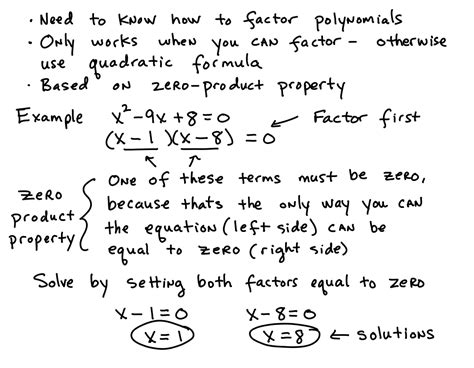 · Need to know how to factor polynomials
· Only works when you can factor - otherwise
use quadratic formula
· Based on zero-product property
Example x²-9x+8=0 ← Factor first
(x-1)(x-8) = 0
Zero product property { One of these terms must be zero,
because thats the only way you can
the equation (left side) can be
equal to zero (right side)
Solve by setting both factors equal to zero
x-1=0 x-8=0
x=1 x=8 ← solutions